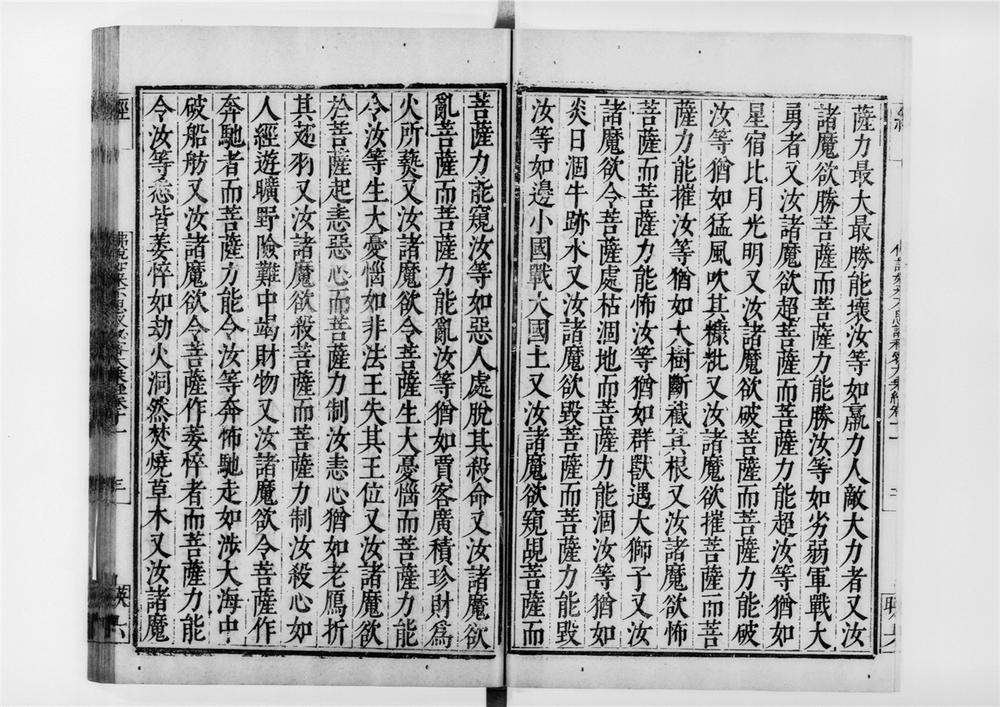 薩力最大最勝能壞汝等如羸力人敵大力者又汝
諸魔欲勝菩薩而菩薩力能勝汝等如劣弱軍戰大
勇者又汝諸魔欲超菩薩而菩薩力能超汝等猶如
星宿比月光明又汝諸魔欲破菩薩而菩薩力能破
汝等猶如猛風吹其糠粃又汝諸魔欲摧菩薩而菩
薩力能摧汝等猶如大樹斷截其根又汝諸魔欲怖
菩薩而菩薩力能怖汝等猶如群獸遇大獅子又汝
諸魔欲令菩薩處枯涸地而菩薩力能涸汝等猶如
炎日涸牛跡水又汝諸魔欲毀菩薩而菩薩力能毀
汝等如邊小國戰大國土又汝諸魔欲窺覘菩薩而
菩薩力能窺汝等如惡人處脫其殺命又汝諸魔欲
亂菩薩而菩薩力能亂汝等猶如賈客廣積珍財為
火所爇又汝諸魔欲令菩薩生大憂惱而菩薩力能
令汝等生大憂惱如非法王失其王位又汝諸魔欲
於菩薩起恚惡心而菩薩力制汝恚心猶如老鴈折
其翅羽又汝諸魔欲殺菩薩而菩薩力制汝殺心如
人經遊曠野險難中竭財物又汝諸魔欲令菩薩作
奔馳者而菩薩力能令汝等奔怖馳走如涉大海中
破船舫又汝諸魔欲令菩薩作萎悴者而菩薩力能
令汝等悉皆萎悴如劫火洞然焚燒草木又汝諸魔
經